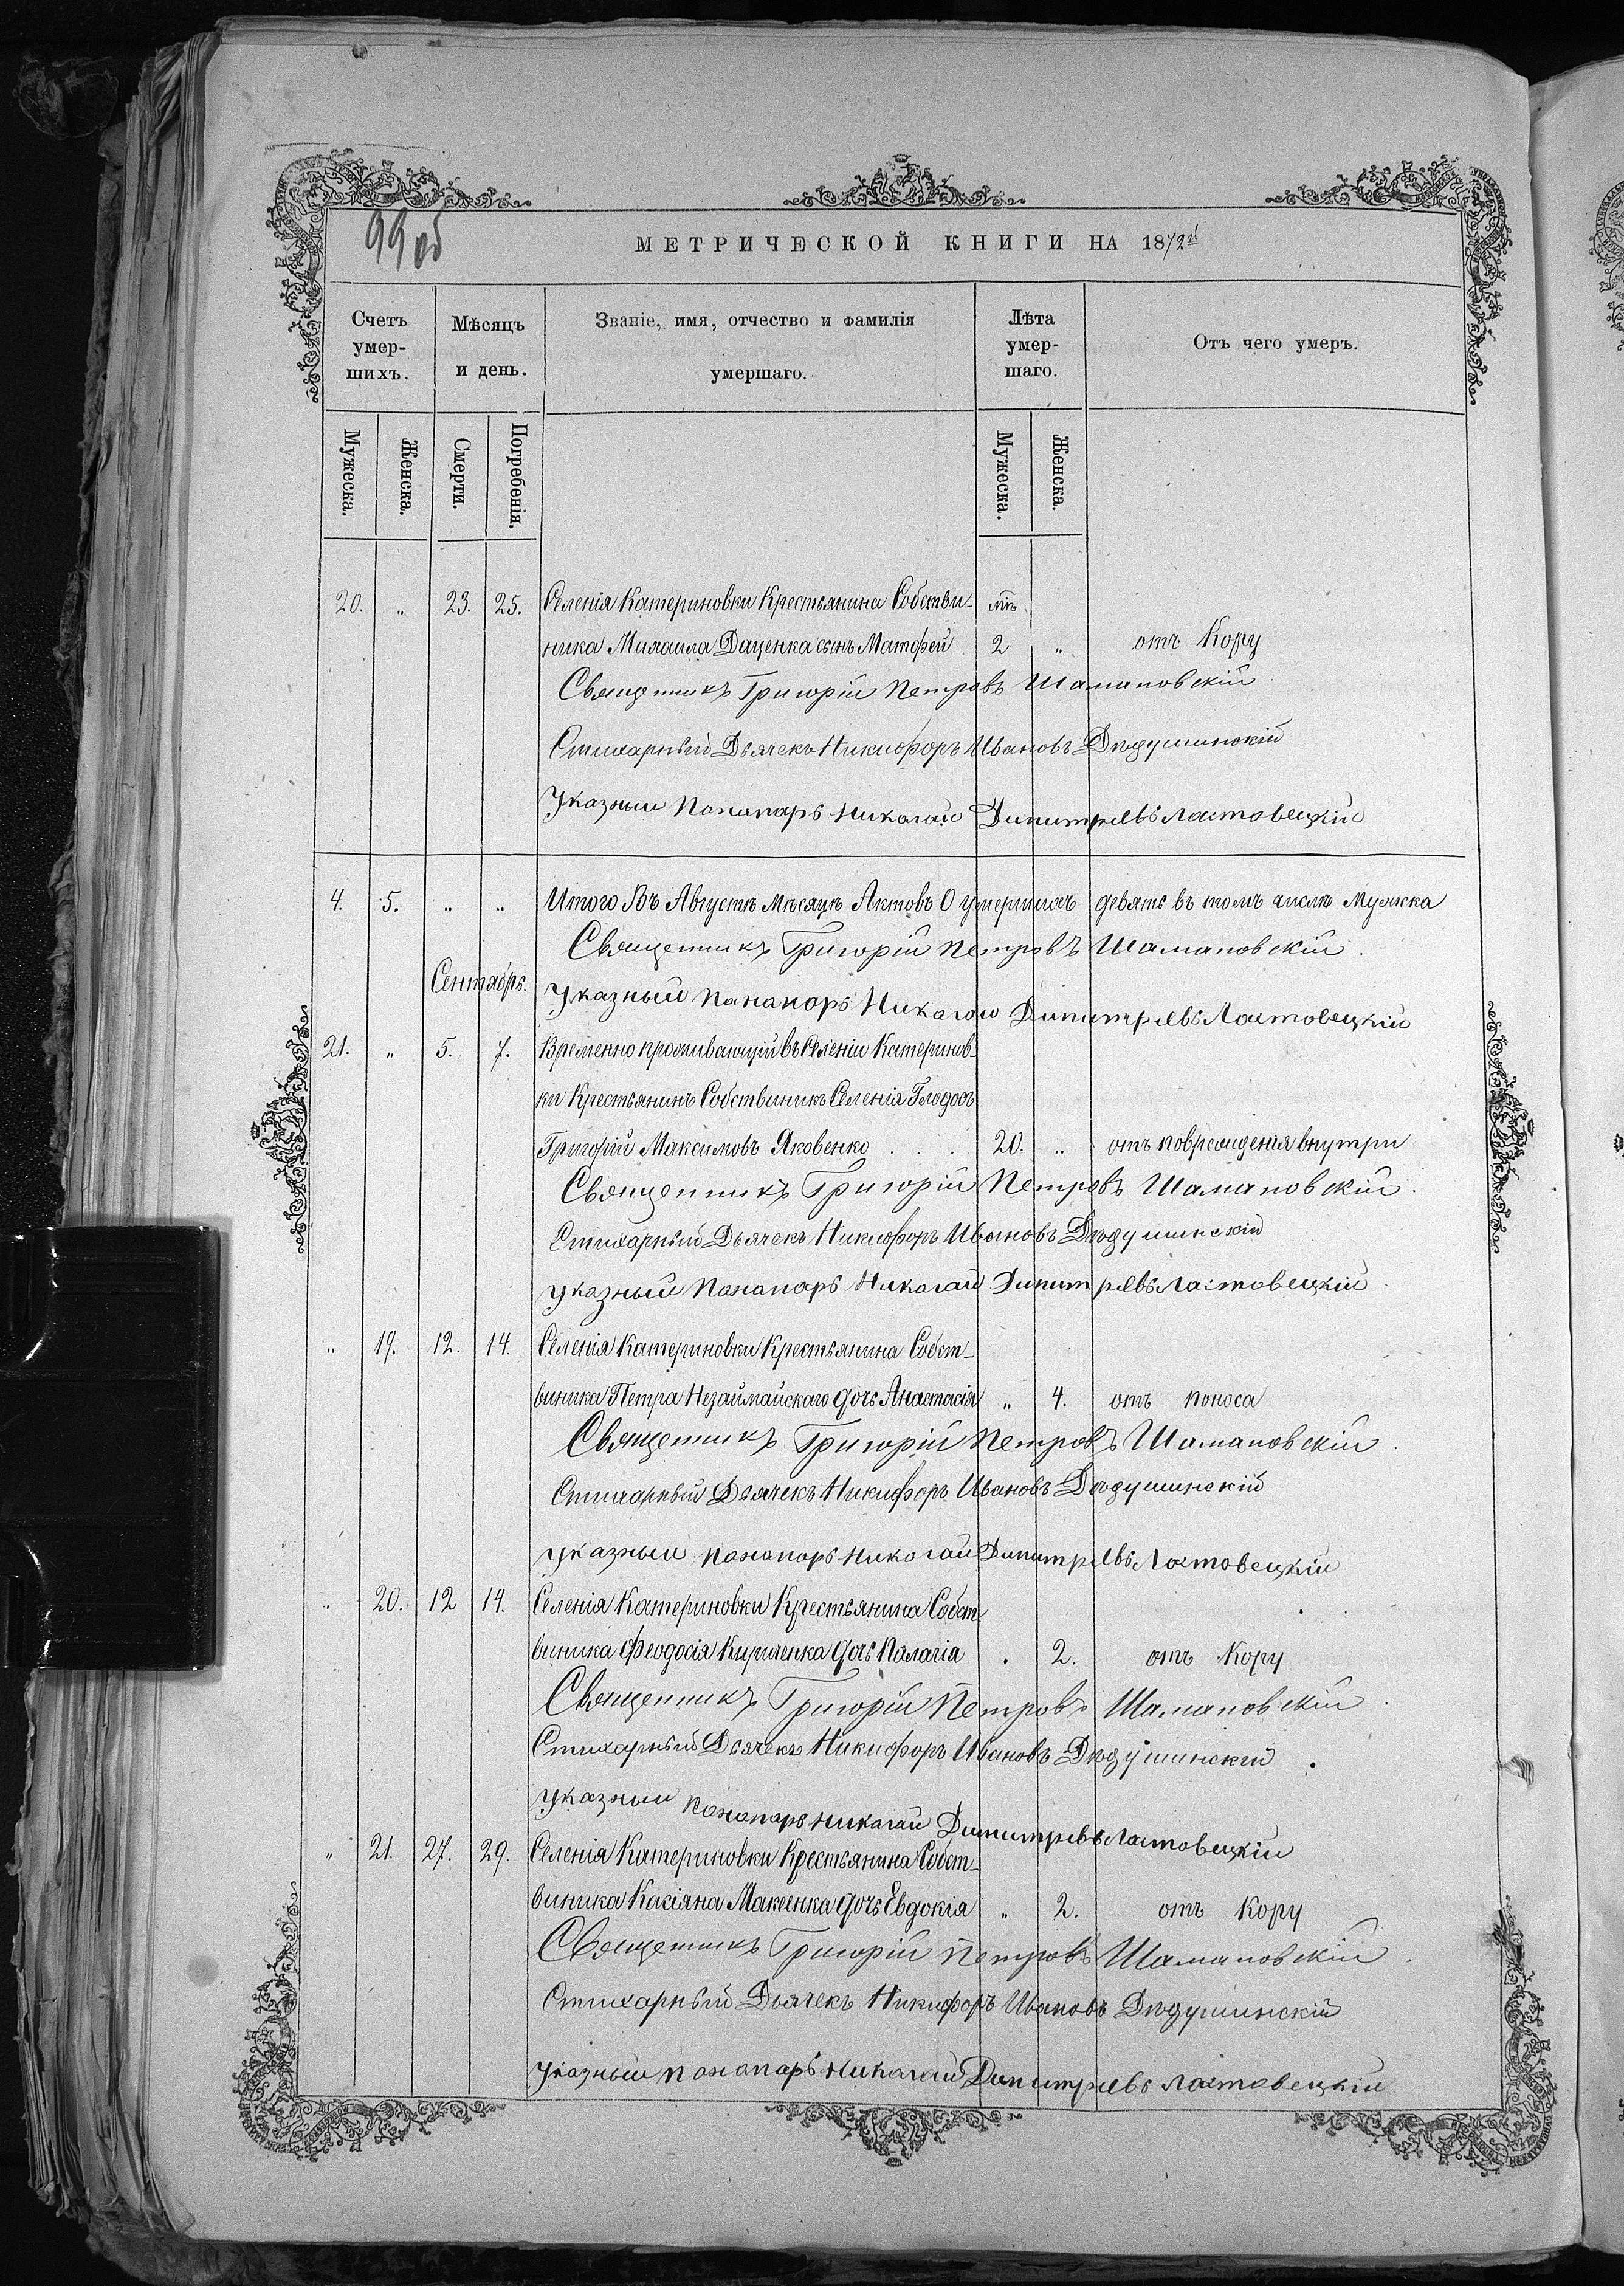 99 об
МЕТРИЧЕСКОЙ КНИГИ НА 1872й
Счетъ умер-шихъ.
Мѣсяцъ и день.
Званіе, имя, отчество и фамилія умершаго.
Лѣта умер-шаго.
Отъ чего умеръ.
Мужеска. Женска. Смерти. Погребенія. Мужеска. Женска.
20. „ 23. 25. Селенія Катериновки Крестьянина Собстви- мц.
ника Михаила Даценка сынъ Матфей 2 „ отъ Кору
Священникъ Григорій Петровъ Шамановскій
Стихарный Дьячекъ Никифоръ Ивановъ Дѣдушинскій
Указный Пономарь Николай Димитріевъ Ластовецкій
4. 5. „ „ Итого Въ Августѣ Мѣсяцѣ Актовъ О умершихъ девять въ томъ числѣ мужска
Священникъ Григорій Петровъ Шамановскій.
Сентябрь.
Указный Пономарь Николай Димитріевъ Ластовецкій
21. „ 5. 7. Временно проживающій въ Селеніи Катеринов-
ки Крестьянинъ Собствиникъ Селенія Глодосъ
Григорій Максимовъ Яковенко . . . 20. „ отъ повреждения внутри
Священникъ Григорій Петровъ Шамановскій.
Стихарный Дьячекъ Никифоръ Ивановъ Дѣдушинскій
Указный Пономарь Николай Димитріевъ Ластовецкій
„ 19. 12. 14. Селенія Катериновки Крестьянина Собст-
виника Петра Незаймайскаго дочь Анастасія „ 4. отъ поноса
Священникъ Григорій Петровъ Шамановскій.
Стихарный Дьячекъ Никифоръ Ивановъ Дѣдушинскій
Указный Пономарь Николай Димитріевъ Ластовецкій
„ 20. 12 14. Селенія Катериновки Крестьянина Собст
виника Феодосія Кириченка дочь Палагія . 2. отъ Кору
Священникъ Григорій Петровъ Шамановскій.
Стихарный Дьячекъ Никифоръ Ивановъ Дѣдушинскій.
Указный Пономарь Николай Димитріевъ Ластовецкій
„ 21. 27. 29. Селенія Катериновки Крестьянина Собст-
виника Касіяна Макеенка дочь Евдокія „ 2. отъ Кору
Священникъ Григорій Петровъ Шамановскій.
Стихарный Дьячекъ Никифоръ Ивановъ Дѣдушинскій
Указный Пономарь Николай Димитріевъ Ластовецкій